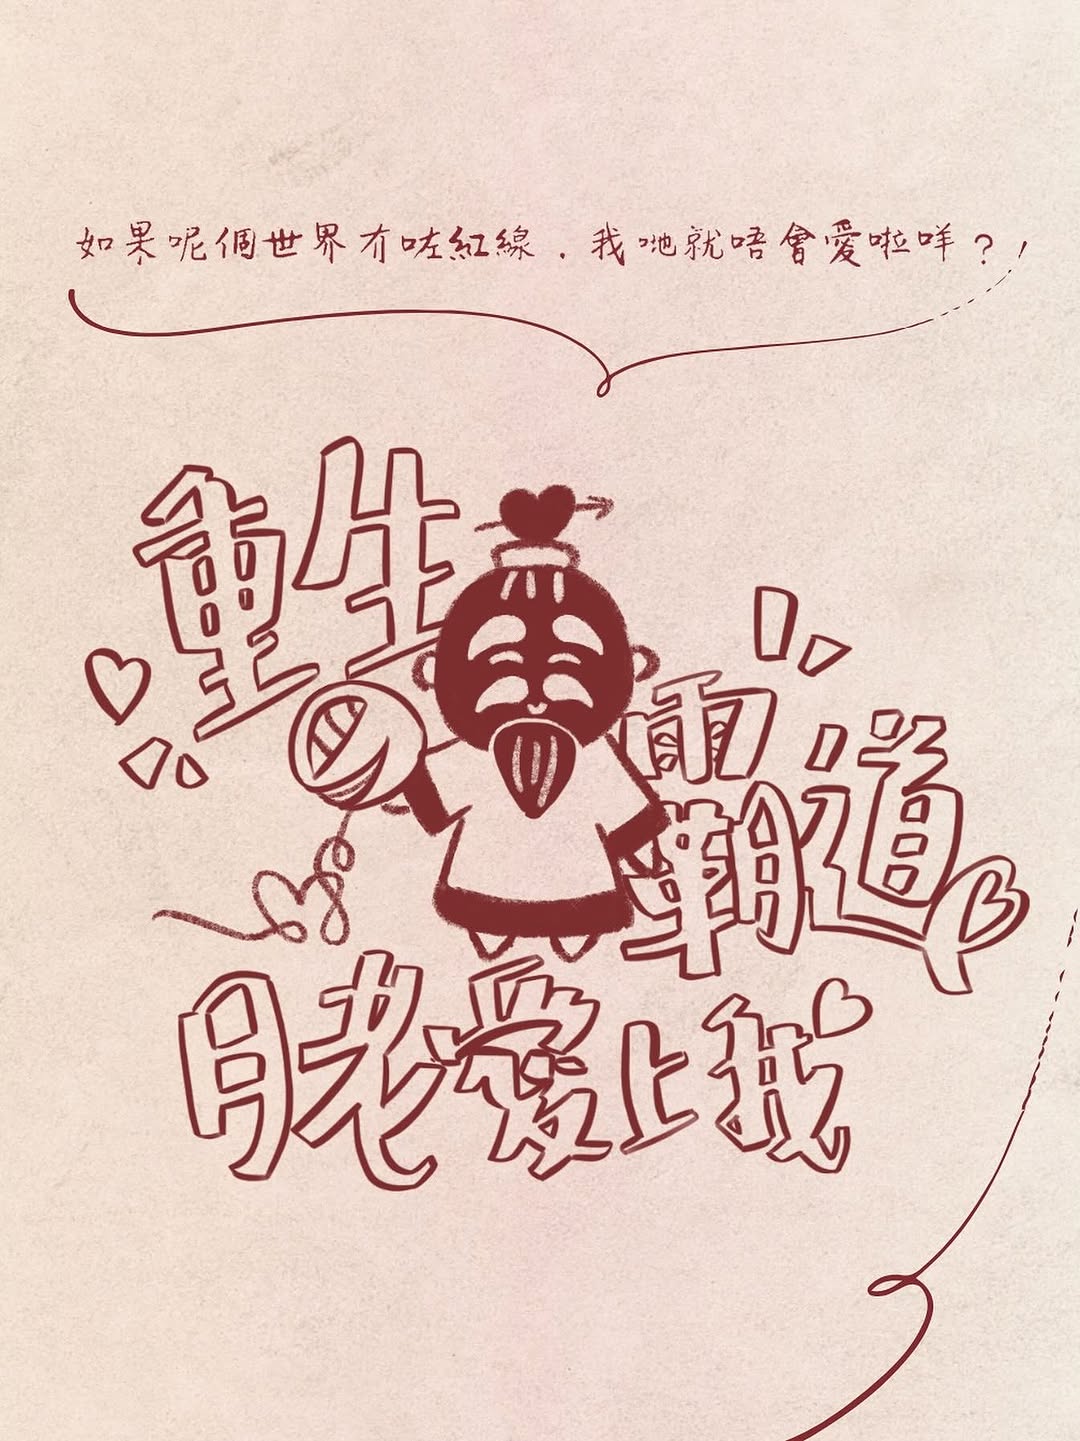 如果呢個世界冇咗紅線，我哋就唔會愛啦咩？
重生
霸道
月老愛上我